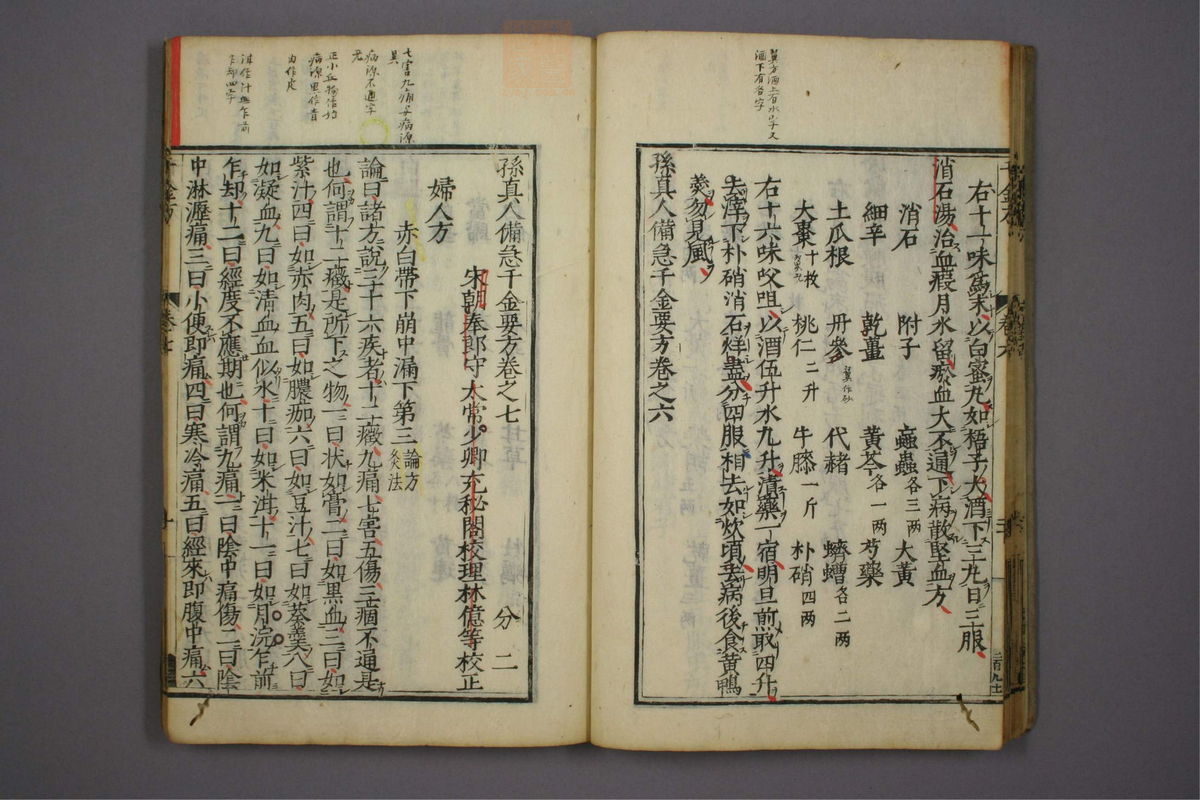 右十一味爲末以白蜜丸如梧子大酒下三丸日三服
消石湯治血瘕月水留瘀血大不通下病散堅血方
消石 附子 蝱蟲各三兩 大黃
細辛 乾薑 黃芩各一兩 芍藥
土瓜根 丹參 代赭 蠐螬各二兩
大棗十枚 桃仁二升 牛膝一斤 朴硝四兩
右十六味㕮咀以酒伍升水九升漬藥一宿明旦煎取四升
去滓下朴硝消石烊盡分四服相去如炊頃去病後食黃鴨
羹勿見風
孫真人備急千金要方卷之六
翼方酒上有水字又
酒下有各字
翼作砂
孫真人備急千金要方卷之七 分二
宋朝奉郎守太常少卿充秘閣校理林億等校正
婦人方
赤白帶下崩中漏下第三 論方 灸法
論曰諸方說三十六疾者十二癥九痛七害五傷三痼不通是
也何謂十二癥是所下之物一曰狀如膏二曰如黑血三曰如
紫汁四曰如赤肉五曰如膿痂六曰如豆汁七曰如葵羹八曰
如凝血九曰如清血血似水十曰如米泔十一曰如月浣乍前
乍却十二曰經度不應期也何謂九痛一曰陰中痛傷二曰陰
中淋瀝痛三曰小便即痛四曰寒冷痛五曰經來即腹中痛六
七害九痛與病源
異
病源不通字
病源黑作青
肉作皮
乍却四字
千金方
卷七
卷六